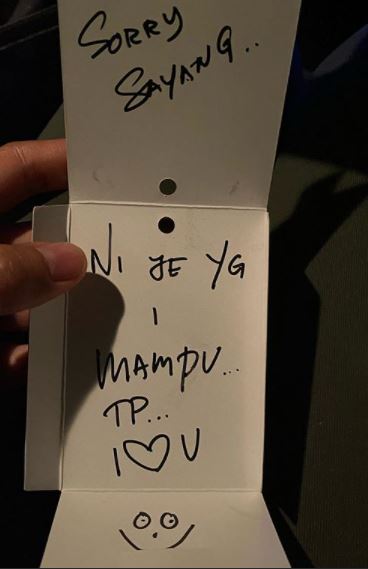 SORRY
SAYANG..
NI JE YG
I
MAMPU...
TP...
I ♡ U